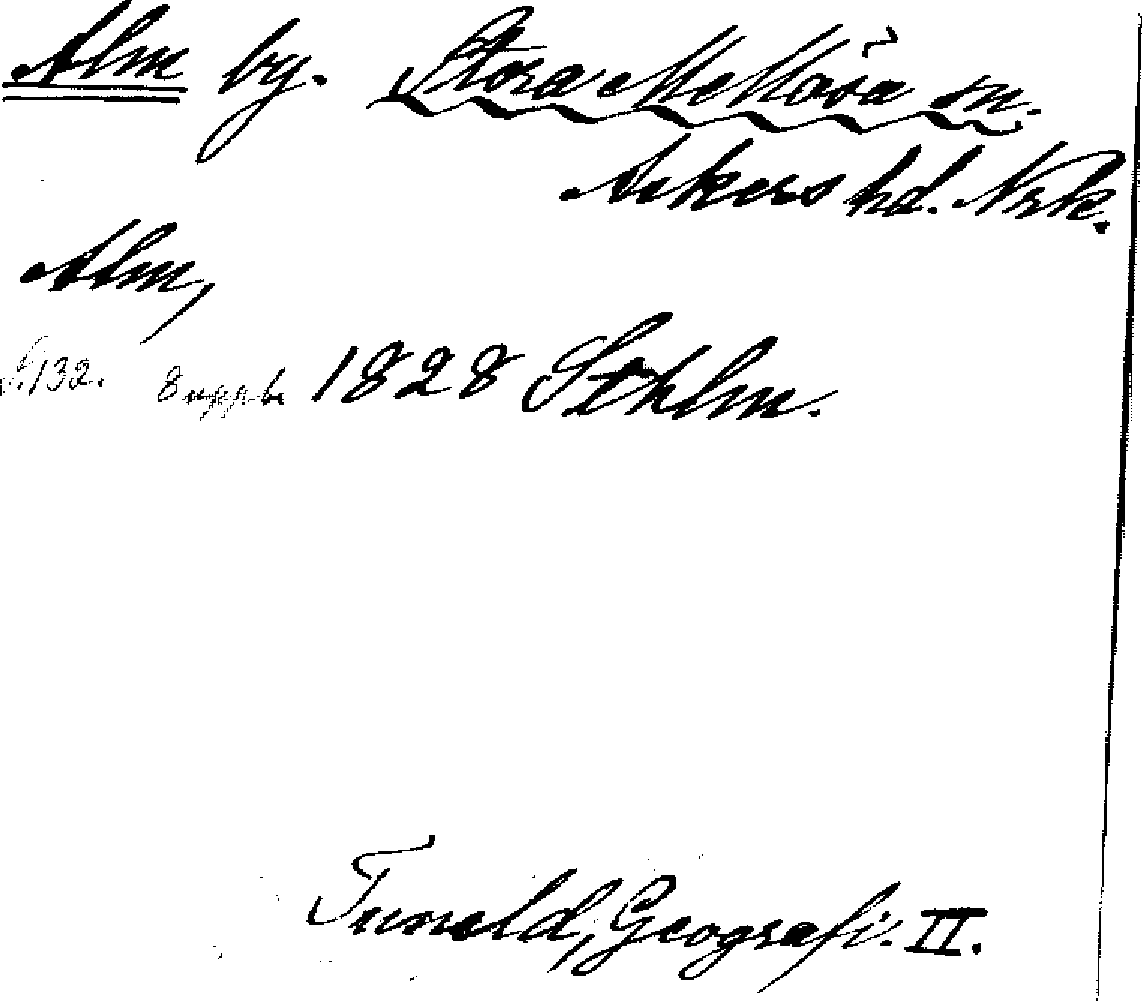 Alm by. Stora Mellösa sn.
Askers hd. Nrk.
Alm,
S.132. 8 uppl. 1828 Sthlm.
Tuneld, Geografi. II.